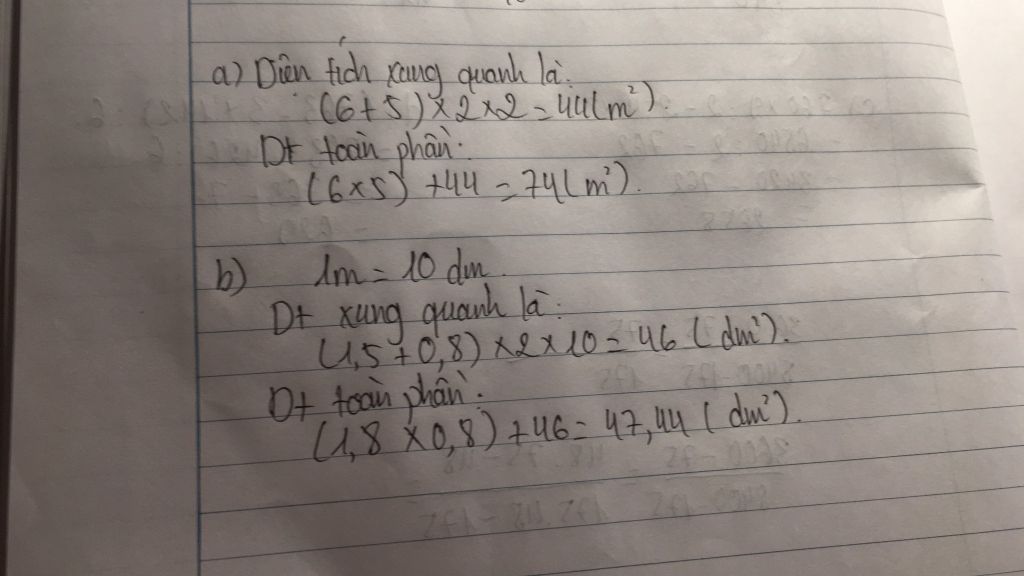 a) Diện tích xung quanh là:
(6+5)×2×2=44(m²).
Dt toàn phần:
(6×5)+44=74(m²).
b) 1m=10 dm.
Dt xung quanh là:
(1,5+0,8)×2×10=46(dm²).
Dt toàn phần:
(1,8×0,8)+46=47,44(dm²).